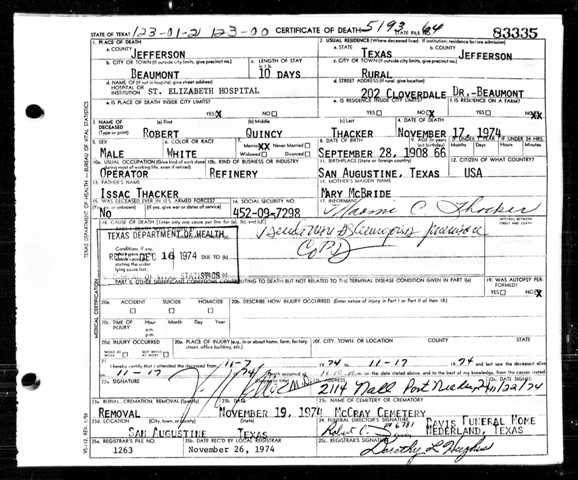 STATE OF TEXAS 123-01-2 123-00 CERTIFICATE OF DEATH 5193 64 STATE FILE NO. 83335
1. PLACE OF DEATH 2. USUAL RESIDENCE (Where deceased lived. If institution: residence before admission)
a. COUNTY JEFFERSON a. STATE TEXAS b. COUNTY JEFFERSON
b. CITY OR TOWN (If outside city limits, give precinct no.) c. LENGTH OF STAY c. CITY OR TOWN (If outside city limits, give precinct no.)
BEAUMONT 10 DAYS RURAL
d. NAME OF (If not in hospital, give street address) HOSPITAL OR INSTITUTION ST. ELIZABETH HOSPITAL d. STREET ADDRESS (If rural, give location) 202 CLOVERDALE DR.-BEAUMONT
e. IS PLACE OF DEATH INSIDE CITY LIMITS? e. IS RESIDENCE INSIDE CITY LIMITS? f. IS RESIDENCE ON A FARM?
YES X NO YES NO X YES NO XX
3. NAME OF DECEASED (Type or print) (a) First (b) Middle (c) Last 4. DATE OF DEATH
ROBERT QUINCY THACKER NOVEMBER 17, 1974
5. SEX 6. COLOR OR RACE 7. Married XX Never Married Widowed Divorced 8. DATE OF BIRTH IF UNDER 1 YEAR IF UNDER 24 HRS.
MALE WHITE SEPTEMBER 28, 1908 66
10a. USUAL OCCUPATION (Give kind of work done during most of working life, even if retired) 10b. KIND OF BUSINESS OR INDUSTRY 11. BIRTHPLACE (State or foreign country) 12. CITIZEN OF WHAT COUNTRY?
OPERATOR REFINERY SAN AUGUSTINE, TEXAS USA
13. FATHER'S NAME 14. MOTHER'S MAIDEN NAME
ISSAC THACKER MARY MCBRIDE
15. WAS DECEASED EVER IN U.S. ARMED FORCES? 16. SOCIAL SECURITY NO. 17. INFORMANT
NO 452-09-7298 Naomi C. Thacker
18. CAUSE OF DEATH
TEXAS DEPARTMENT OF HEALTH
COPD
REC'D DEC 16 1974 DUE TO
BUREAU OF VITAL STATISTICS
PART II. OTHER SIGNIFICANT CONDITIONS CONTRIBUTING TO DEATH BUT NOT RELATED TO THE TERMINAL DISEASE CONDITION GIVEN IN PART I(a) 19. WAS AUTOPSY PERFORMED?
YES NO X
20a. ACCIDENT SUICIDE HOMICIDE 20b. DESCRIBE HOW INJURY OCCURRED. (Enter nature of injury in Part I or Part II of item 18.)
20c. TIME OF INJURY Hour Month Day Year a.m. p.m.
20d. INJURY OCCURRED 20e. PLACE OF INJURY (e.g. in or about home, farm, factory, street, office building, etc.) 20f. CITY, TOWN, OR LOCATION COUNTY STATE
WHILE AT WORK NOT WHILE AT WORK
21. I hereby certify that I attended the deceased from 11-7 1974 to 11-17 1974 and last saw the deceased alive
on 11-17 1974. Death occurred at m. on the date stated above, and to the best of my knowledge, from the causes stated.
22a. SIGNATURE 22b. ADDRESS 22c. DATE SIGNED
2114 Nall Port Neches
23a. BURIAL, CREMATION, REMOVAL (Specify) 23b. DATE 23c. NAME OF CEMETERY OR CREMATORY
REMOVAL NOVEMBER 19, 1974 MCCRAY CEMETERY
23d. LOCATION (City, town, or county) (State) 24. FUNERAL DIRECTOR'S SIGNATURE
SAN AUGUSTINE TEXAS Robert C. DAVIS FUNERAL HOME NEDERLAND, TEXAS
25a. REGISTRAR'S FILE NO. 25b. DATE REC'D BY LOCAL REGISTRAR 25c. REGISTRAR'S SIGNATURE
1263 NOVEMBER 26, 1974 Dorothy L. Hughes